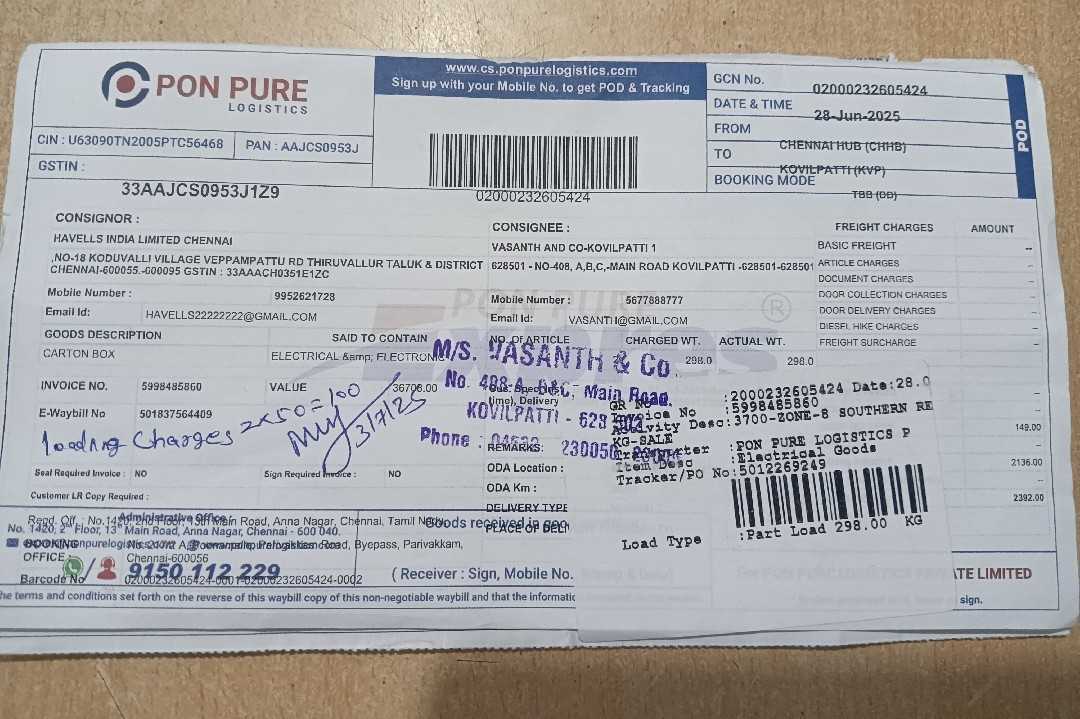 PON PURE
LOGISTICS
www.cs.ponpurelogistics.com
Sign up with your Mobile No. to get POD & Tracking
GCN No. 02000232605424
DATE & TIME 28-Jun-2025
FROM CHENNAI HUB (CHHB)
TO KOVILPATTI (KVP)
BOOKING MODE TBB (DD)
POD
CIN : U63090TN2005PTC56468 PAN : AAJCS0953J
GSTIN :
33AAJCS0953J1Z9
02000232605424
CONSIGNOR :
HAVELLS INDIA LIMITED CHENNAI
,NO-18 KODUVALLI VILLAGE VEPPAMPATTU RD THIRUVALLUR TALUK & DISTRICT
CHENNAI-600055.-600095 GSTIN : 33AAACH0351E1ZC
Mobile Number : 9952621728
Email Id: HAVELLS22222222@GMAIL.COM
CONSIGNEE :
VASANTH AND CO-KOVILPATTI 1
628501 - NO-408, A,B,C,-MAIN ROAD KOVILPATTI -628501-628501
Mobile Number : 5677888777
Email Id: VASANTH@GMAIL.COM
PON PURE
Express
®
FREIGHT CHARGES AMOUNT
BASIC FREIGHT --
ARTICLE CHARGES --
DOCUMENT CHARGES --
DOOR COLLECTION CHARGES --
DOOR DELIVERY CHARGES --
DIESEL HIKE CHARGES --
FREIGHT SURCHARGE --
149.00
2136.00
2392.00
GOODS DESCRIPTION SAID TO CONTAIN
CARTON BOX ELECTRICAL &amp; ELECTRONIC
NO. OF ARTICLE CHARGED WT. ACTUAL WT.
298.0 298.0
INVOICE NO. 5998485860 VALUE 36706.00
E-Waybill No 501837564409
loading charges 2x50=100
3/7/25
M/S. VASANTH & Co.
No. 408-A, B&C, Main Road,
KOVILPATTI - 628 502
Phone : 04632 230050
time), Delivery
REMARKS:
Seal Required Invoice : NO Sign Required Invoice : NO
Customer LR Copy Required :
ODA Location :
ODA Km :
DELIVERY TYPE
PLACE OF DELI
GR No :2000232605424 Date:28.0
Invoice No :5998485860
Activity Desc:3700-ZONE-8 SOUTHERN RE
KG-SALE
Transporter :PON PURE LOGISTICS P
Item Desc :Electrical Goods
Tracker/PO No:5012269249
Load Type :Part Load 298.00 KG
Regd. Off. : No.1420, 2nd Floor, 13th Main Road, Anna Nagar, Chennai, Tamil Nadu
Administrative Office :
No. 1420, 2nd Floor, 13th Main Road, Anna Nagar, Chennai - 600 040.
Goods received in goo
BOOKING
OFFICE :
Road, Byepass, Parivakkam,
Chennai-600056
9150 112 229
Barcode No 02000232605424-0001-02000232605424-0002
( Receiver : Sign, Mobile No.
ATE LIMITED
sign.
he terms and conditions set forth on the reverse of this waybill copy of this non-negotiable waybill and that the informatic